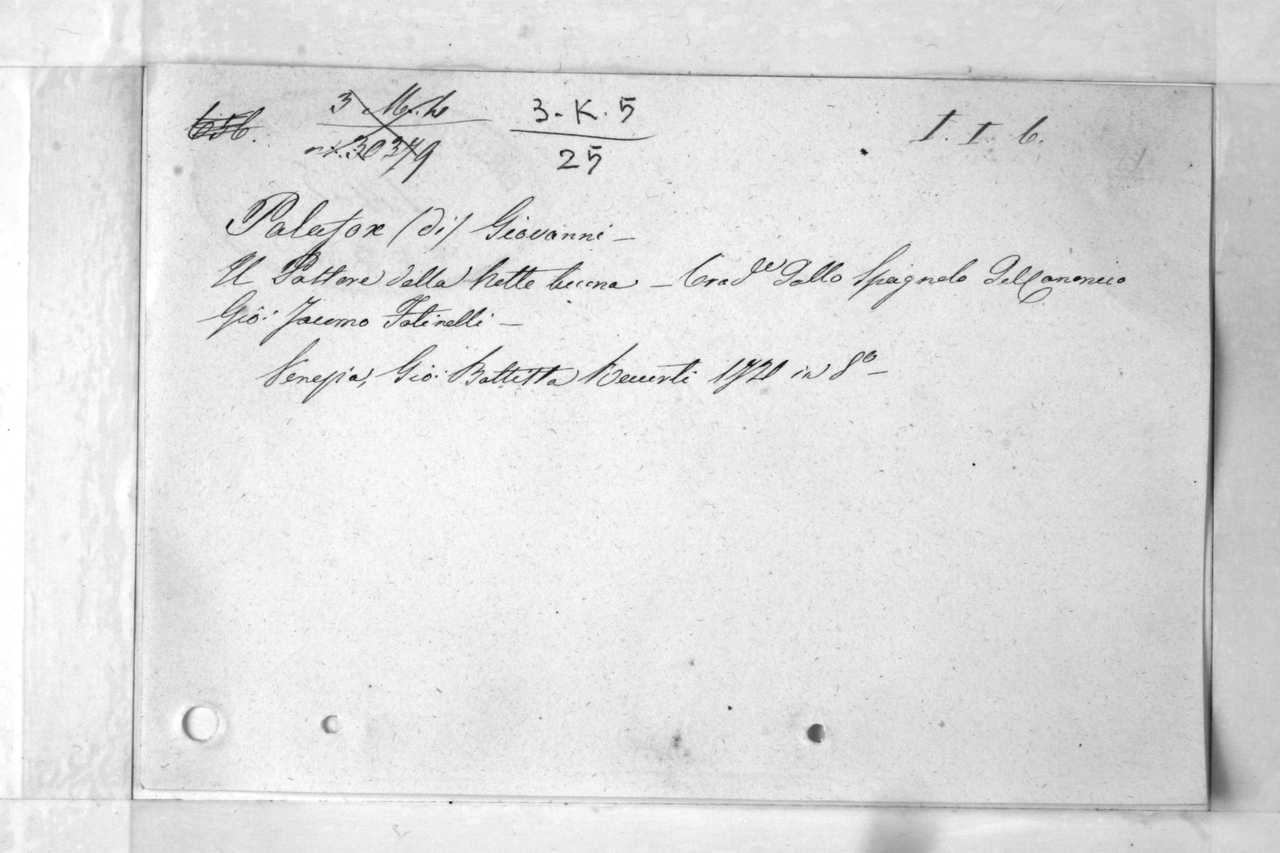 656. 3 3-K.5 I. I. 6.
nº. 30379 25
Palafox (di) Giovanni –
Il Pastore della Notte buona – Tradne Dallo Spagnolo Del Canonico
Gio: Jacomo Fatinelli –
Venezia, Gio: Battista Recurti 1720 in 8º –